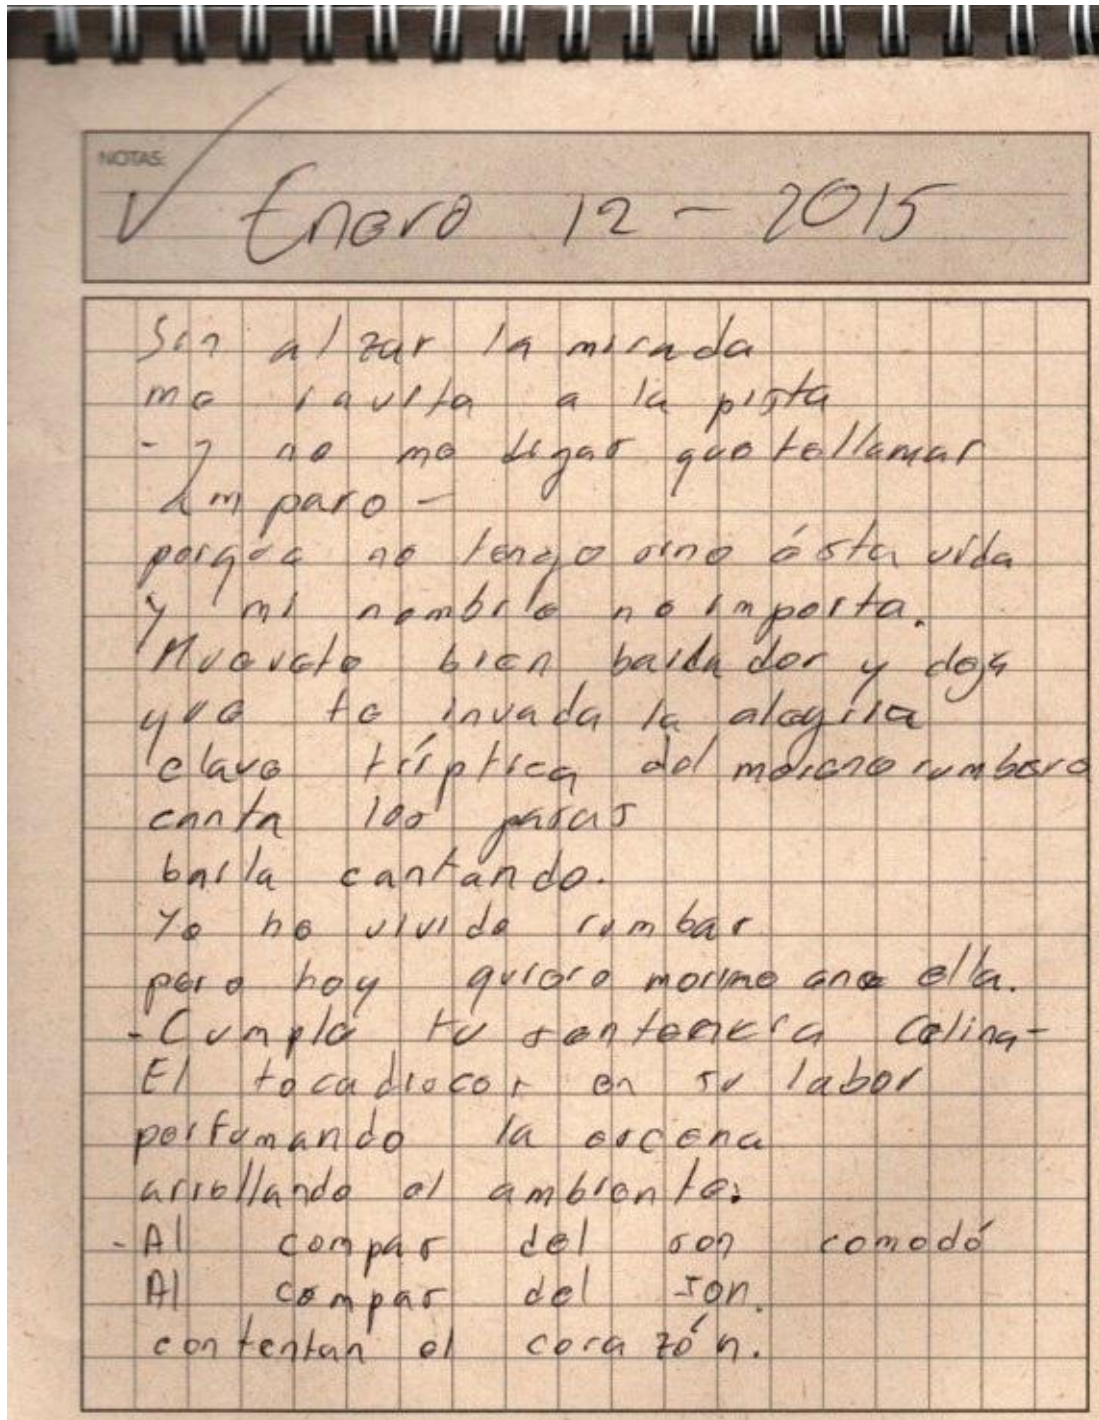 NOTAS:
✓ Enero 12 - 2015
Sin alzar la mirada
me invita a la pista
- Y no me digas que te llamas
Amparo -
porque no tengo sino ésta vida
y mi nombre no importa.
Muevete bien bailador y deja
que te invada la alegria
clave tríptica del moreno rumbero
canta las paras
baila cantando.
Yo he vivido rumbas
pero hoy quiero morirme en ella.
- Cumple tu sentencia Celina -
El tocadiscos en su labor
perfumando la escena
arrollando el ambiente:
- Al compas del son comodó
Al compas del son.
contentan el corazón.